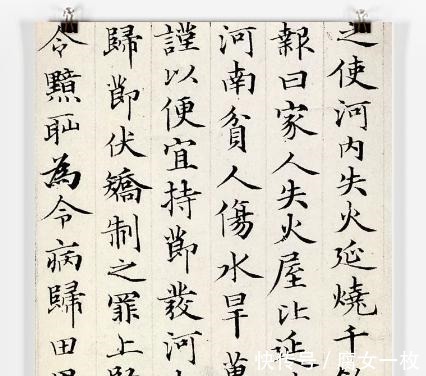 之使河内失火延燒千
報曰家人失火屋比延
河南貧人傷水旱萬
謹以便宜持節發河
歸節伏矯制之罪上
令黯恥為令病歸田
快传号 / 女一枚